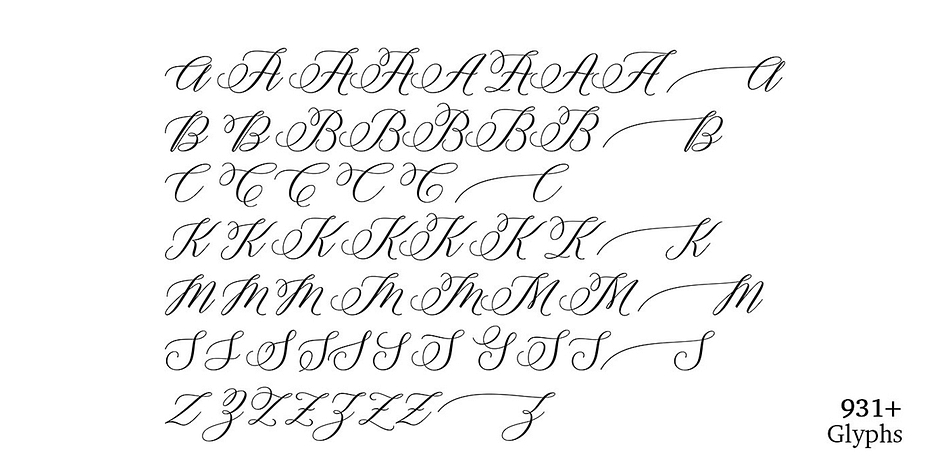 A A A A A A A A A
B B B B B B B B
C C C C C C
K K K K K K K K
M M M M M M M M
S S S S S S S S S S S
Z Z Z Z Z Z Z Z
931+
Glyphs